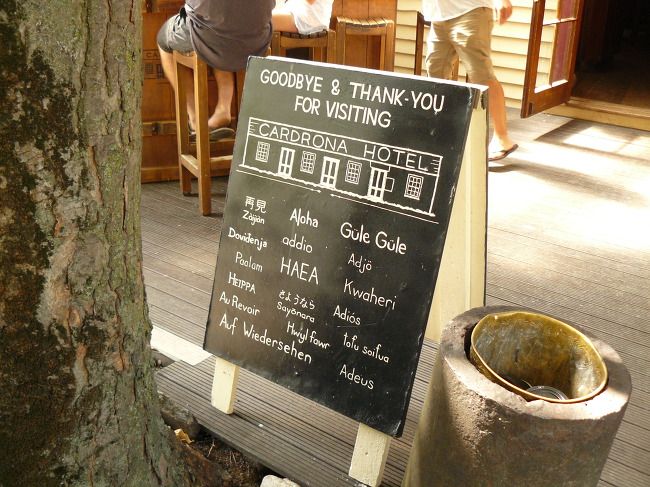 GOODBYE & THANK-YOU
FOR VISITING
CARDRONA HOTEL
再見
Zàijiàn
Aloha
Güle Güle
Doviđenja
addio
Adjö
Paalam
HAEA
Kwaheri
HEIPPA
さようなら
Sayōnara
Adiós
Au Revoir
Hwyl fawr
tofu soifua
Auf Wiedersehen
Adeus